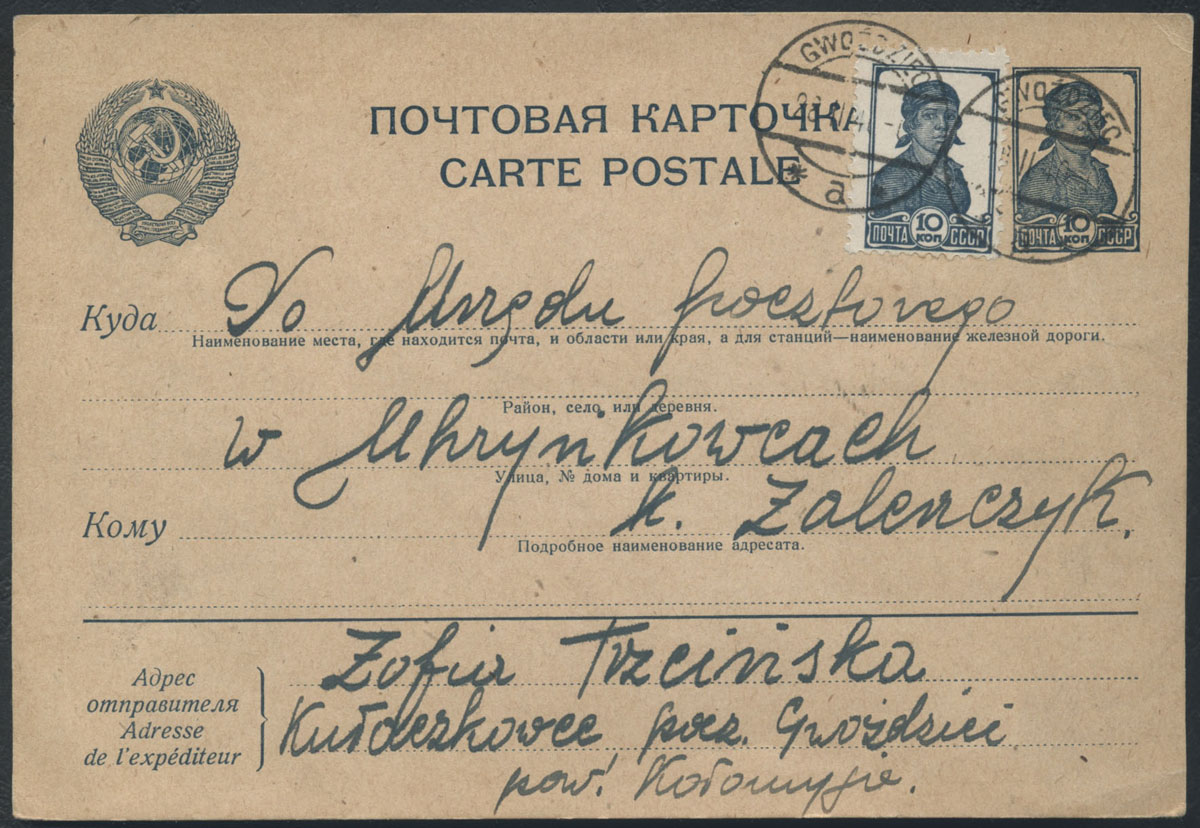 ПОЧТОВАЯ КАРТОЧКА
CARTE POSTALE
GWOŹDZIEC
a
GWOŹDZIEC
10
КОП
ПОЧТА СССР
10
КОП
ПОЧТА СССР
Куда Do Urzędu pocztowego
Наименование места, где находится почта, и области или края, а для станций—наименование железной дороги.
Район, село или деревня.
w Uhryńkowcach
Улица, № дома и квартиры.
Кому k. Zaleszczyk.
Подробное наименование адресата.
Адрес
отправителя
Adresse
de l'expéditeur
Zofia Trzcińska
Kułaczkowce pocz. Gwoździec
pow. Kołomyja.